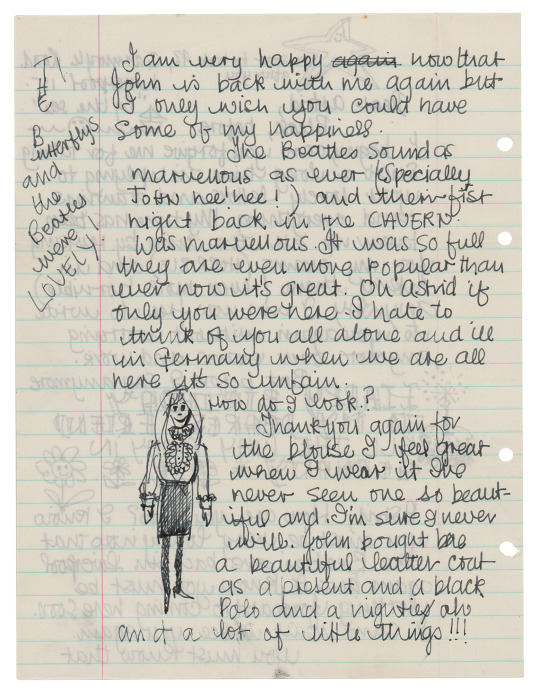 I am very happy again now that
John is back with me again but
I only wish you could have
Some of my happiness.
The Beatles Sound as
marvellous as ever especially
John hee! hee! and their fist
night back in the CAVERN.
Was marvellous. It was so full
they are even more popular than
ever now it's great. Oh Astrid if
only you were here. I hate to
think of you all alone and ill
in Germany when we are all
here its so unfair.
how do I look?
Thankyou again for
the blouse I feel great
when I wear it I've
never seen one so beaut-
iful and I'm sure I never
will. John bought me
a beautiful leather coat
as a present and a black
Polo and a nightie oh
and a lot of little things!!!
THE
Butterflys
and
the
Beatles
were
LOVELY!